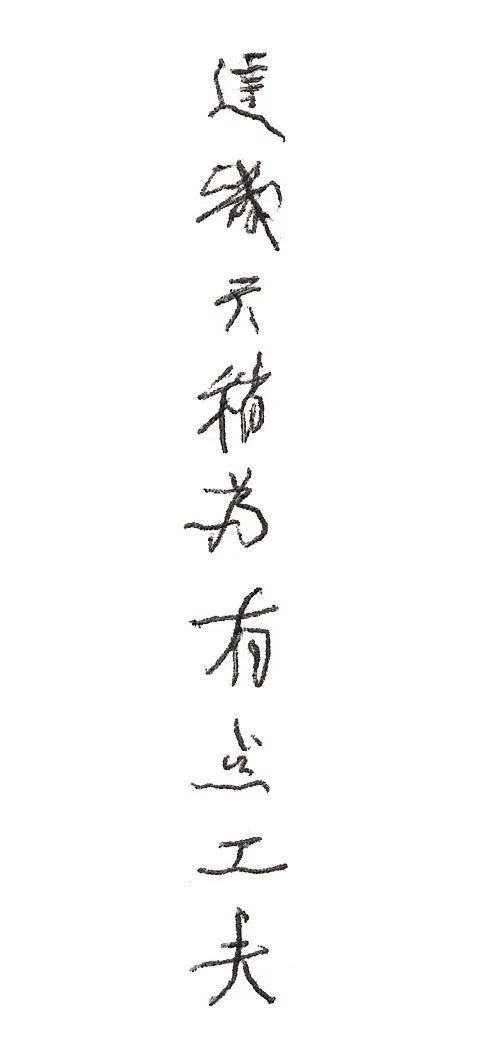 這幾天稍為有点工夫